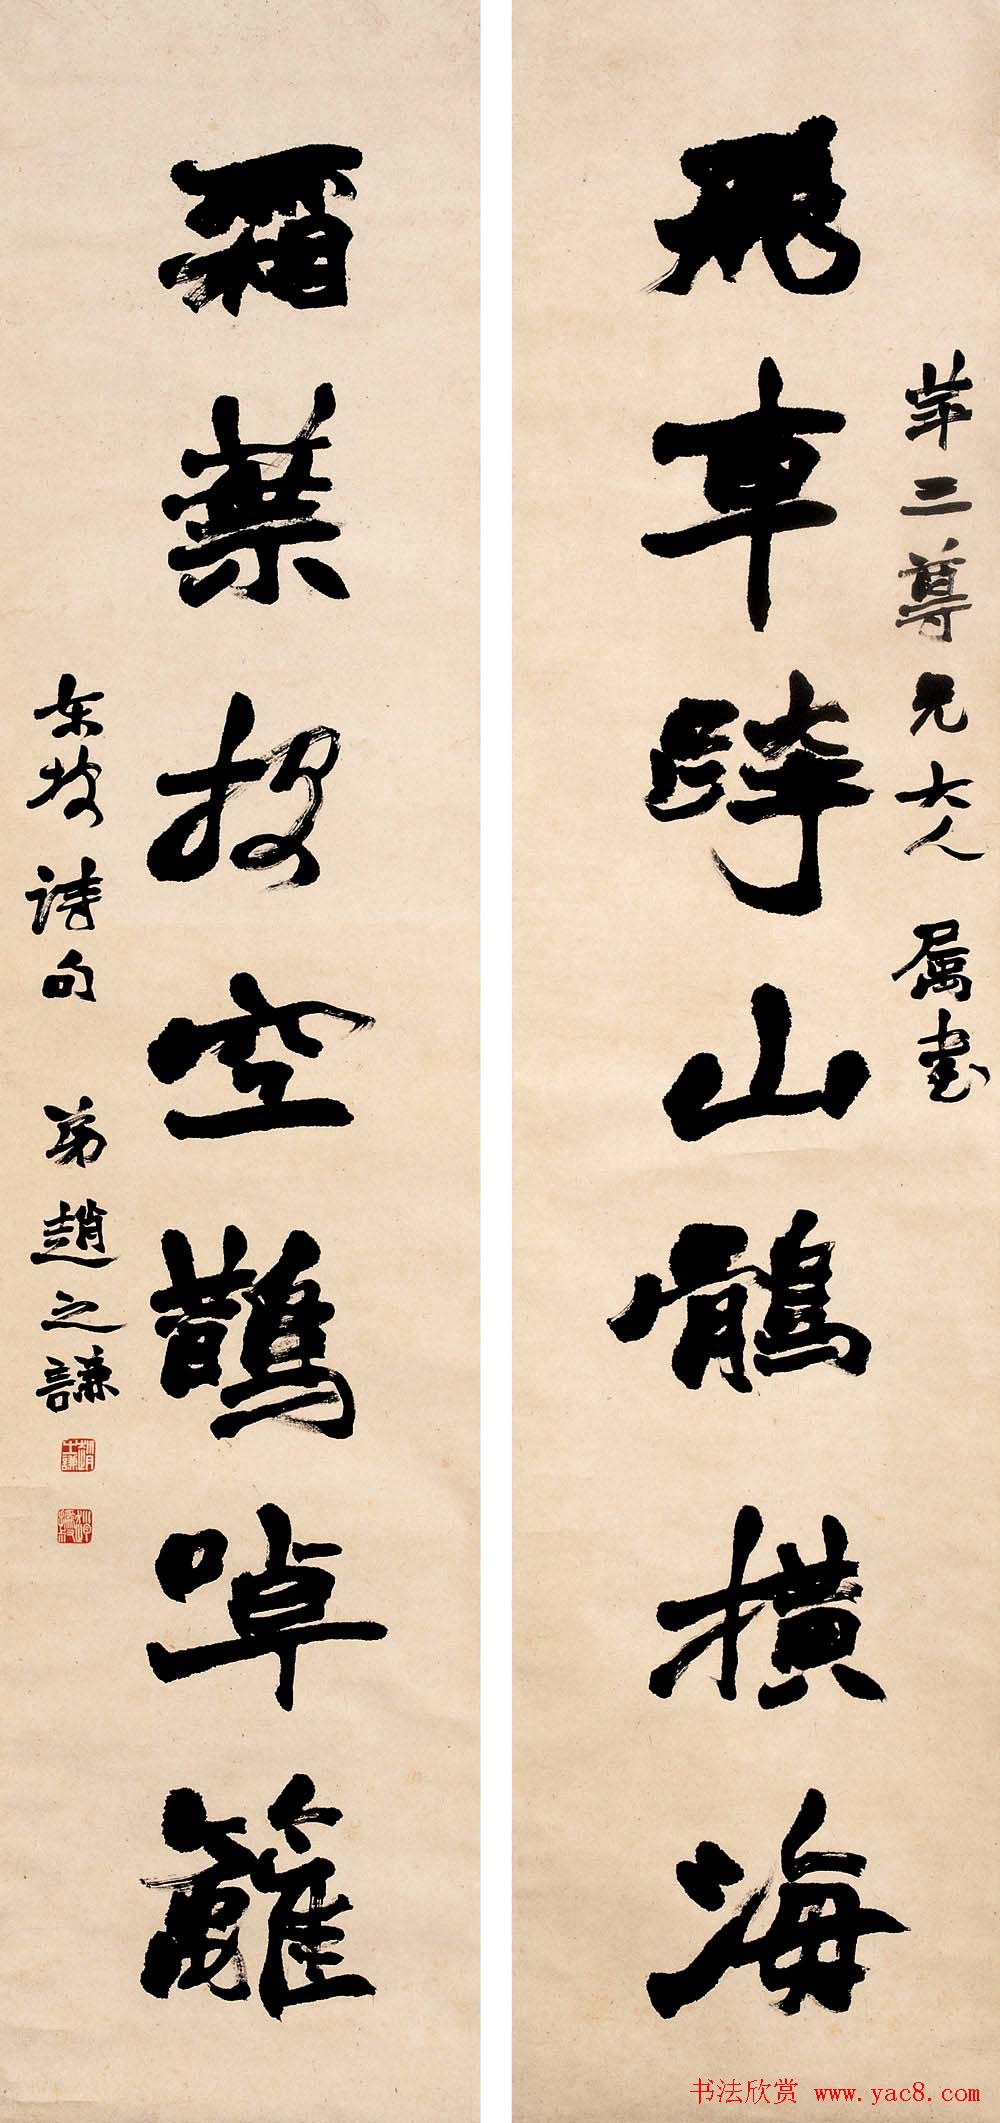 飛車跨山鶻橫海
芊三尊兄大人 属書
霜葉投空鵲啅籬
东坡詩句 弟趙之謙
书法欣赏 www.yac8.com